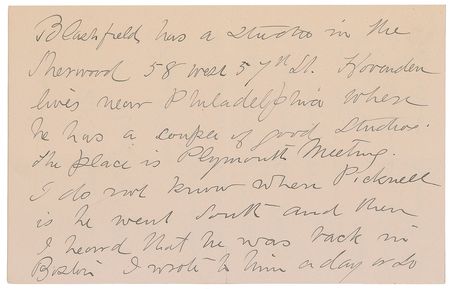 Blashfield has a studio in the
Sherwood 58 West 57th St. Hovenden
lives near Philadelphia where
he has a couple of good studios.
The place is Plymouth Meeting.
I do not know where Picknell
is he went South and then
I heard that he was back in
Boston I wrote to him a day or so